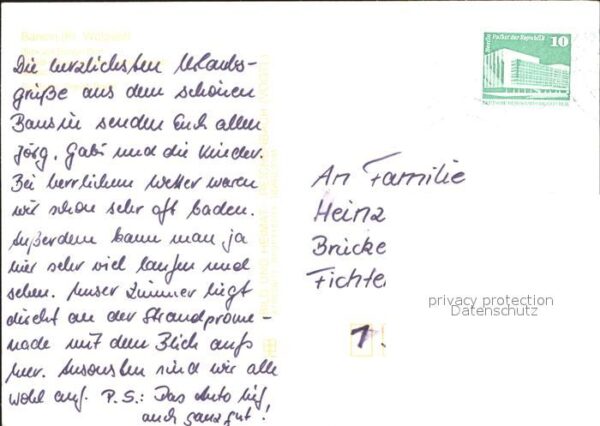 Die herzlichsten Urlaubs-
grüße aus dem schönen
Bansin senden Euch allen
Jörg, Gabi und die Kinder.
Bei herrlichem Wetter waren
wir schon sehr oft baden.
Außerdem kann man ja
hier sehr viel laufen und
sehen. Unser Zimmer liegt
direkt an der Strandprome-
nade mit dem Blick aufs
Meer. Ansonsten sind wir alle
wohl auf. P.S.: Das Auto lief
auch ganz gut!
Berlin Palast der Republik
10
An Familie
Heinz
Brücke
Fichte
privacy protection
Datenschutz
7.